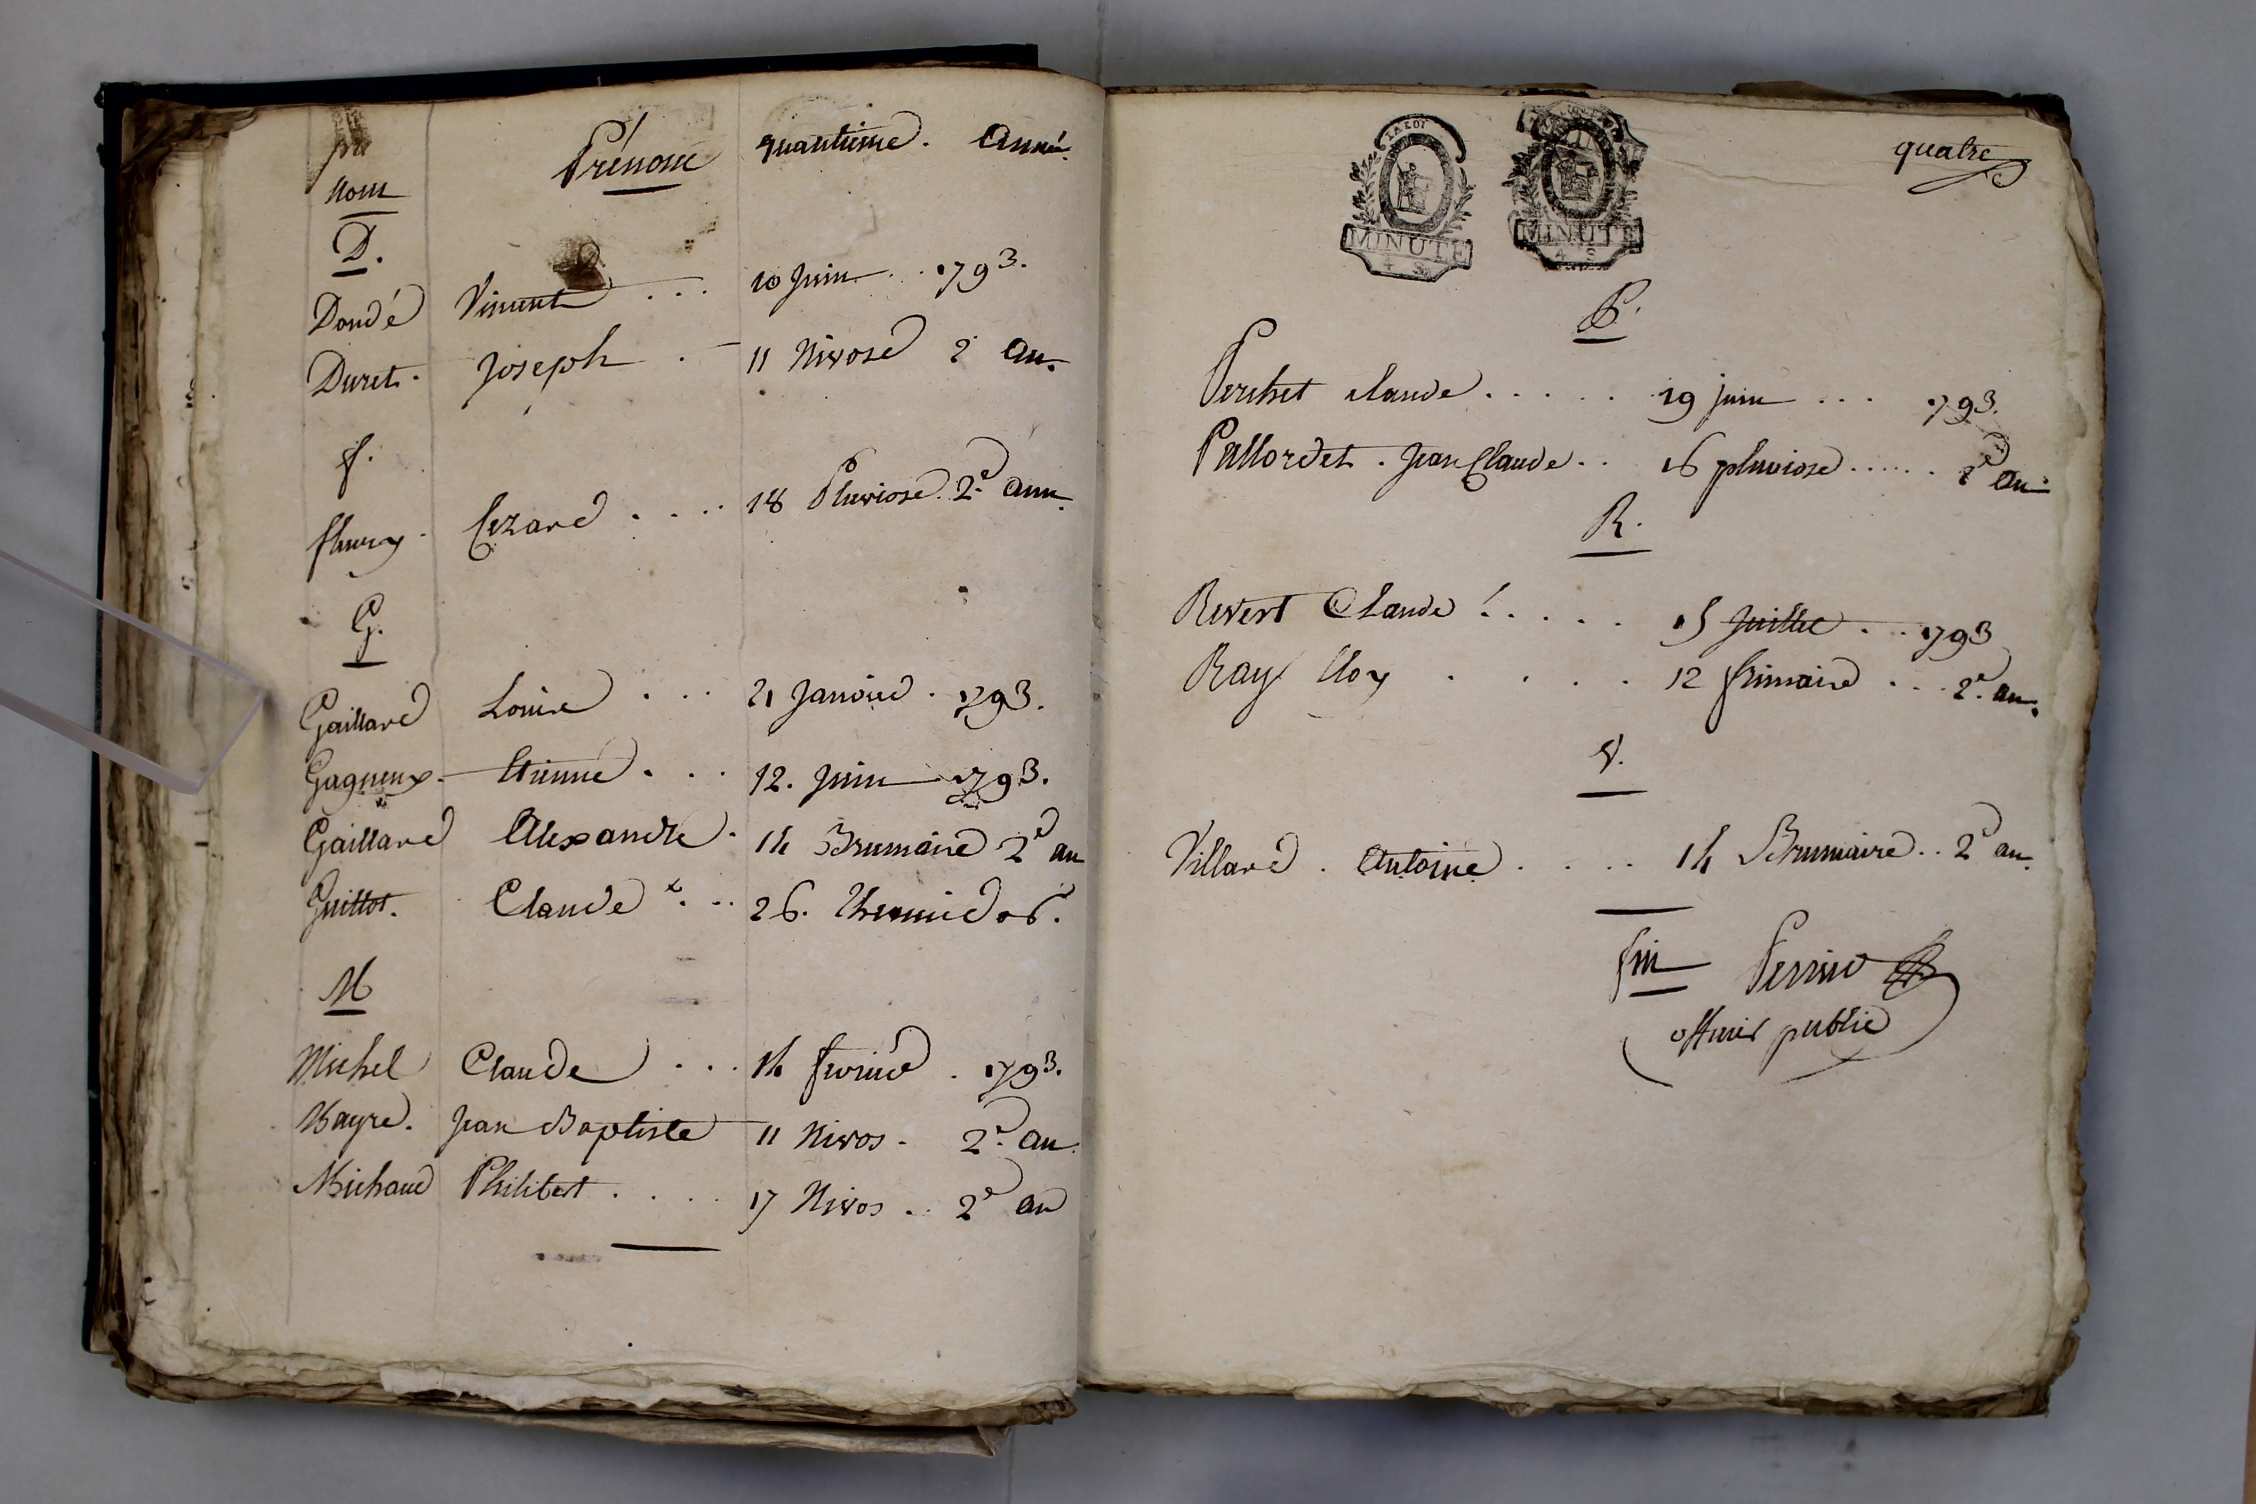 Nom Prénom quantieme. Année
D.
Dondé Vincent ... 10 Juin .. 1793.
Duret. Joseph . 11 Nivose 2 an.
f.
fleury. Cezard .... 18 Pluviose. 2e ann.
G.
Gaillard Louise ... 21 Janvier . 1793.
Gagneux. Etienne ... 12. Juin 1793.
Gaillard Alexandre . 14 Brumaire 2e an
Guillot. Claude ... 26. Thermidor.
M
Michel Claude ... 14 fevrier . 1793.
Mayre. Jean Baptiste 11 Nivos. 2e an.
Michaud Philibert .... 17 Nivos .. 2e an
quatre
LA LOI
MINUTE
4 S
MINUTE
4 S
P.
Perchet claude ..... 19 juin ... 1793.
Pallordet. Jean Claude .. 16 pluviose ...... 2e an.
R.
Revert Claude ..... 15 Juillet ... 1793
Ray Eloy .... 12 frimaire ... 2e. an.
V.
Villard . Antoine .... 14 Brumaire .. 2e an.
fin Perrin
officier public